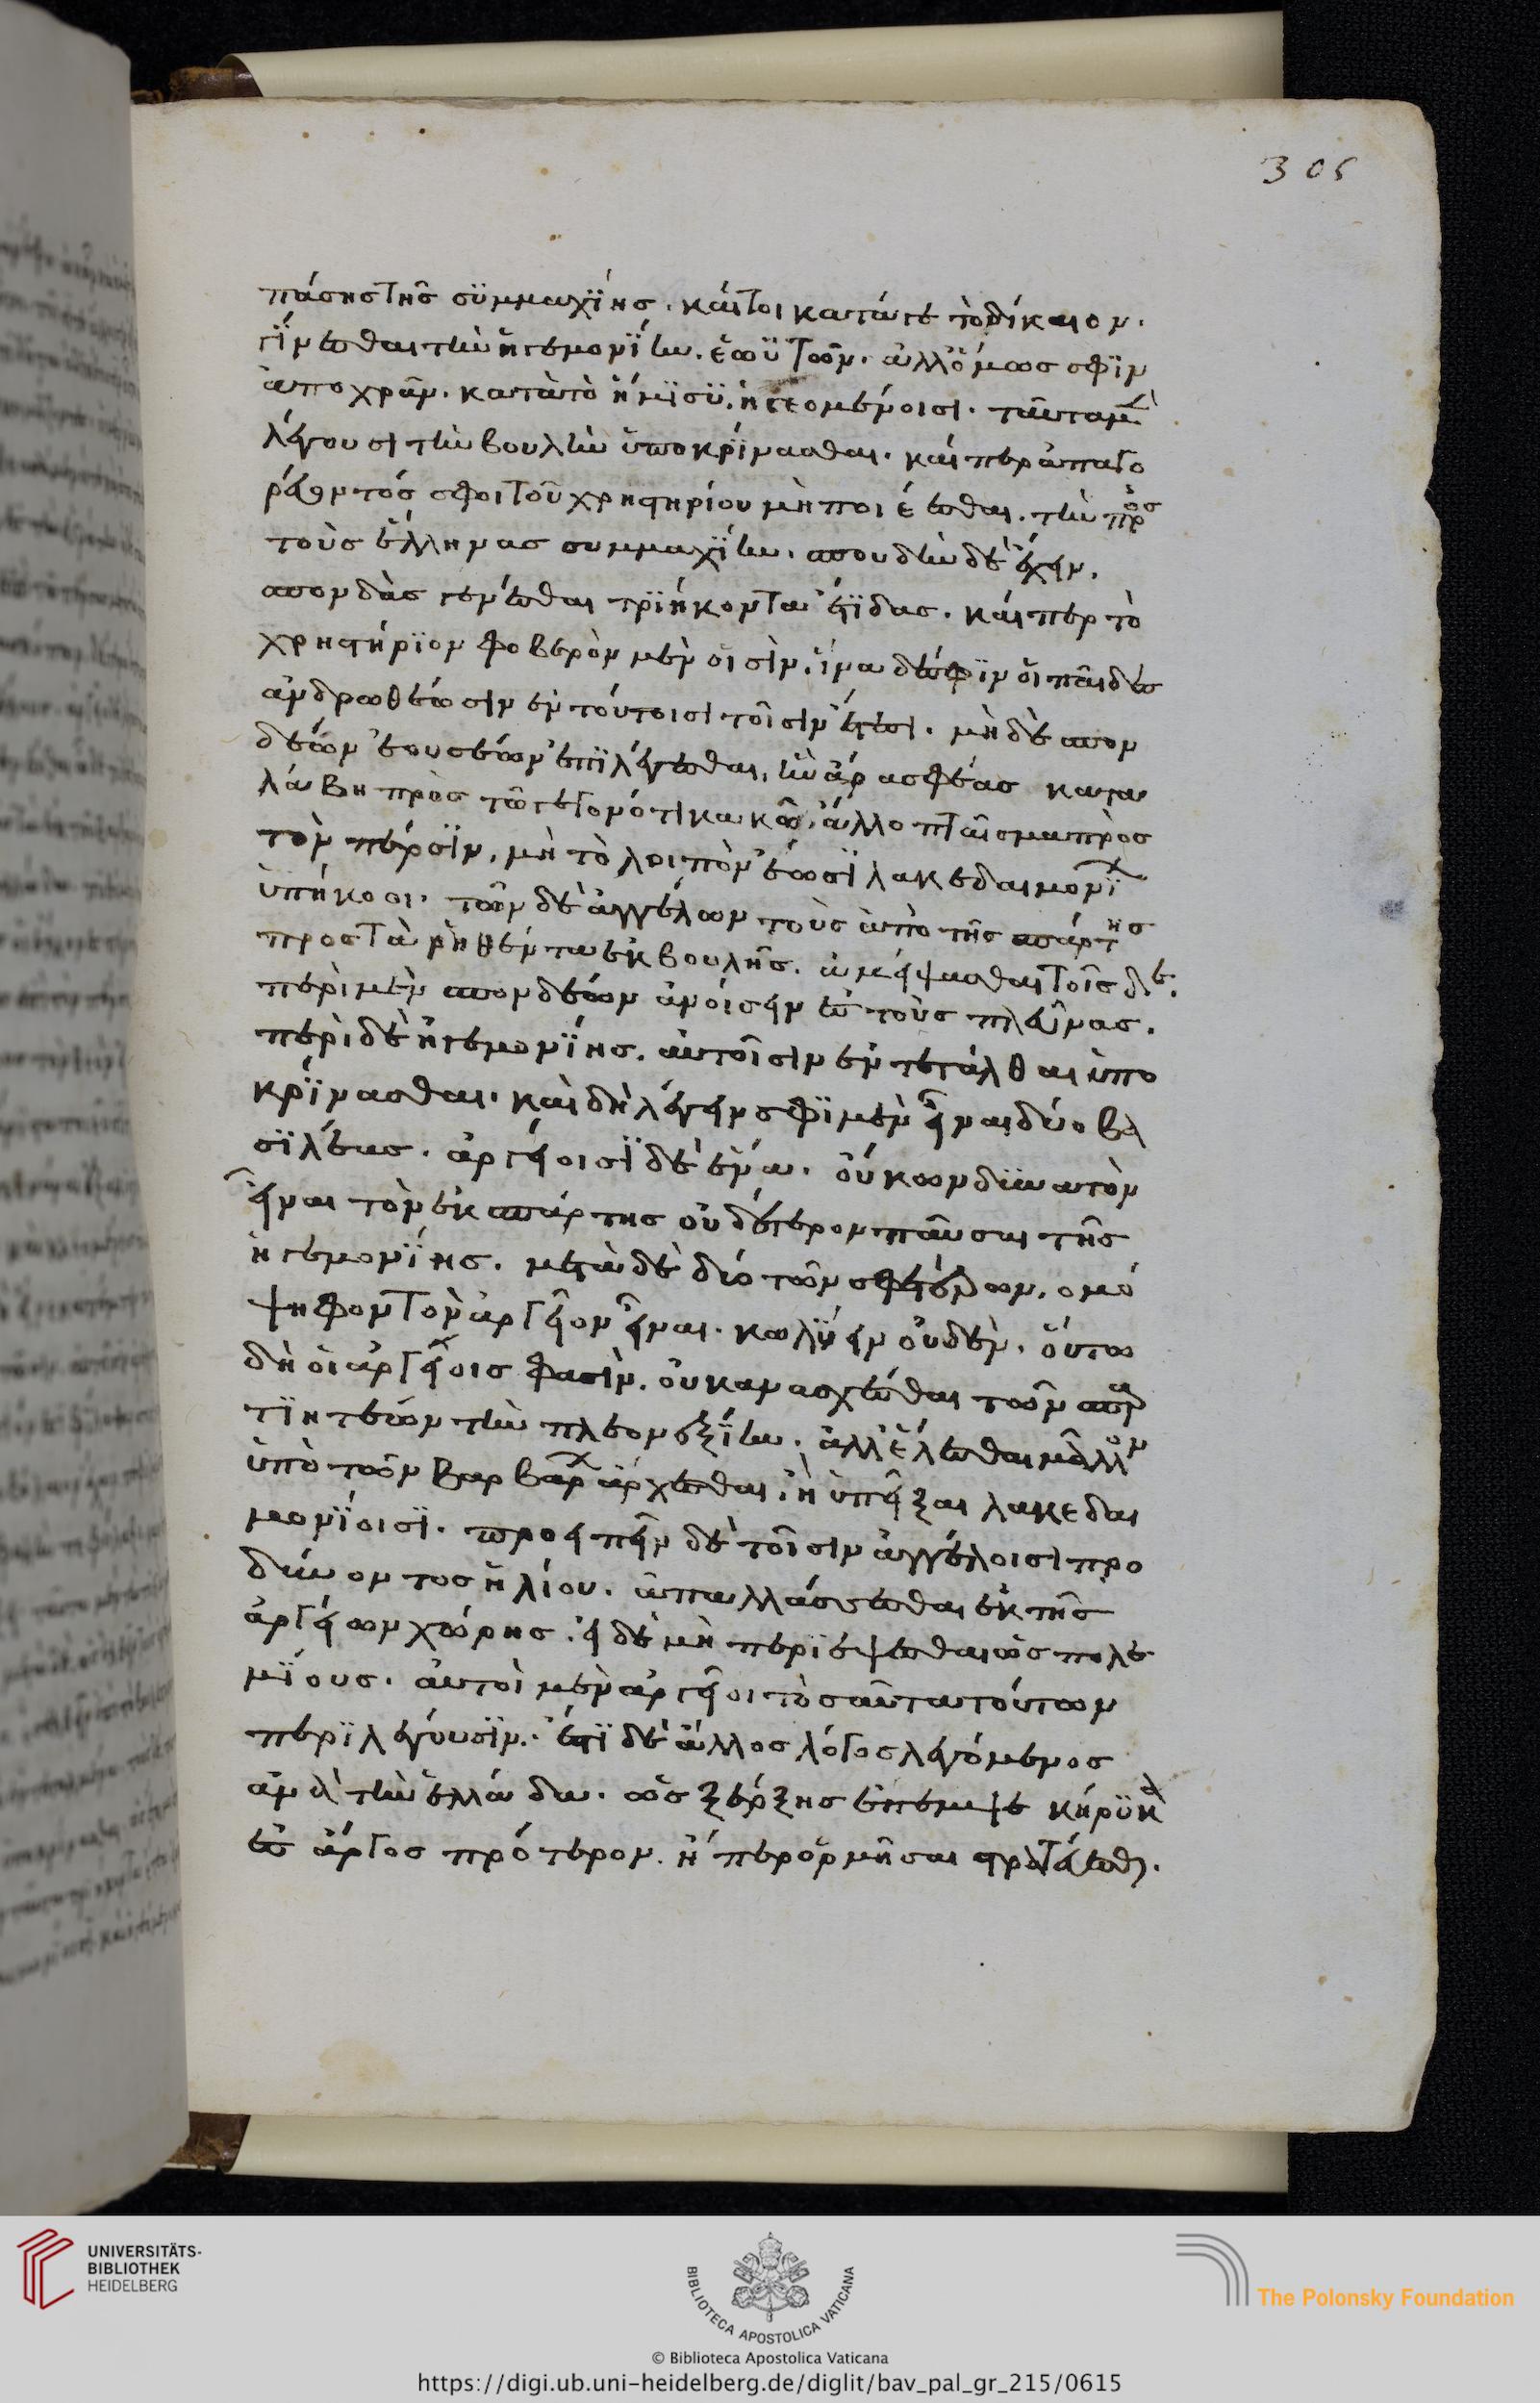 305
πάσης τῆς συμμαχίης. καίτοι κατά γε τὸ δίκαιον.
γίνεσθαι τὴν ἡγεμονίην ἑωυτῶν. ἀλλ' ὅμως σφιν
ἀποχρᾶν. κατὰ τὸ ἥμισυ ἡγεομένοισι. ταῦτα μὲν
λέγουσι τὴν βουλὴν ὑποκρίνασθαι. καίπερ ἀπαγο
ρεύοντός σφοι τοῦ χρηστηρίου μὴ ποιέεσθαι. τὴν πρὸς
τοὺς ἕλληνας συμμαχίην. σπουδὴν δὲ ἔχειν.
σπονδὰς γενέσθαι τριήκοντα ἔτιδας. καίπερ τὸ
χρηστήριον φοβερὸν μὲν οἷσιν. ἵνα δέ σφιν οἱ παῖδες
ἀνδρωθέωσιν ἐν τούτοισι τοῖσιν ἔτεσι. μὴ δὲ σπον
δέων ἐουσέων ἐπιλέγεσθαι, ἢν ἄρα σφέας κατα
λάβῃ πρὸς τῷ γεγονότι κακῷ. ἄλλο πταῖσμα πρὸς
τὸν πέρσιν, μὴ τὸ λοιπὸν ἔωσι λακεδαιμονι
ὑπήκοοι. τῶν δὲ ἀγγέλων τοὺς ἀπὸ τῆς σπάρτης
πρὸς τὰ ῥηθέντα ἐκ βουλῆς. ἀμείψασθαι τοῖς δε.
περὶ μὲν σπονδέων ἀνοίσειν ἐς τοὺς πλεῦνας.
περὶ δὲ ἡγεμονίης. αὐτοῖσιν ἐντετάλθαι ὑπο
κρίνασθαι. καὶ δὴ λέγειν σφι μὲν εἶναι δύο βα
σιλέας. ἀργείοισι δὲ ἕνα. οὔκων δυνατὸν
εἶναι τὸν ἐκ σπάρτης οὐδέτερον παῦσαι τῆς
ἡγεμονίης. μετὰ δὲ δύο τῶν σφετέρων. ὁμό
ψηφον τὸν ἀργεῖον εἶναι. κωλύειν οὐδέν. οὕτω
δὴ οἱ ἀργεῖοις φασὶν. οὐκ ἀνασχέσθαι τῶν σπαρ
τιητέων τὴν πλεονεξίην. ἀλλ' ἑλέσθαι μᾶλλον
ὑπὸ τῶν βαρβάρ ἄρχεσθαι. ἢ ὑπεῖξαι λακεδαι
μονίοισι. προειπεῖν δὲ τοῖσιν ἀγγέλοισι προ
δύνοντος ἡλίου. ἀπαλλάσσεσθαι ἐκ τῆς
ἀργείων χώρης. εἰ δὲ μὴ περιέψεσθαι ὡς πολε
μίους. αὐτοὶ μὲν ἀργεῖοι τοσαῦτα τούτων
περι λέγουσιν. ἔστι δὲ ἄλλος λόγος λεγόμενος
ἀνὰ τὴν ἑλλάδα. ὡς ξέρξης ἔπεμψε κήρυκα
ἐς ἄργος πρότερον. ἤπερ ὁρμῆσαι στρατεύεσθαι.
UNIVERSITÄTS-
BIBLIOTHEK
HEIDELBERG
BIBLIOTECA APOSTOLICA VATICANA
The Polonsky Foundation
© Biblioteca Apostolica Vaticana
https://digi.ub.uni-heidelberg.de/diglit/bav_pal_gr_215/0615